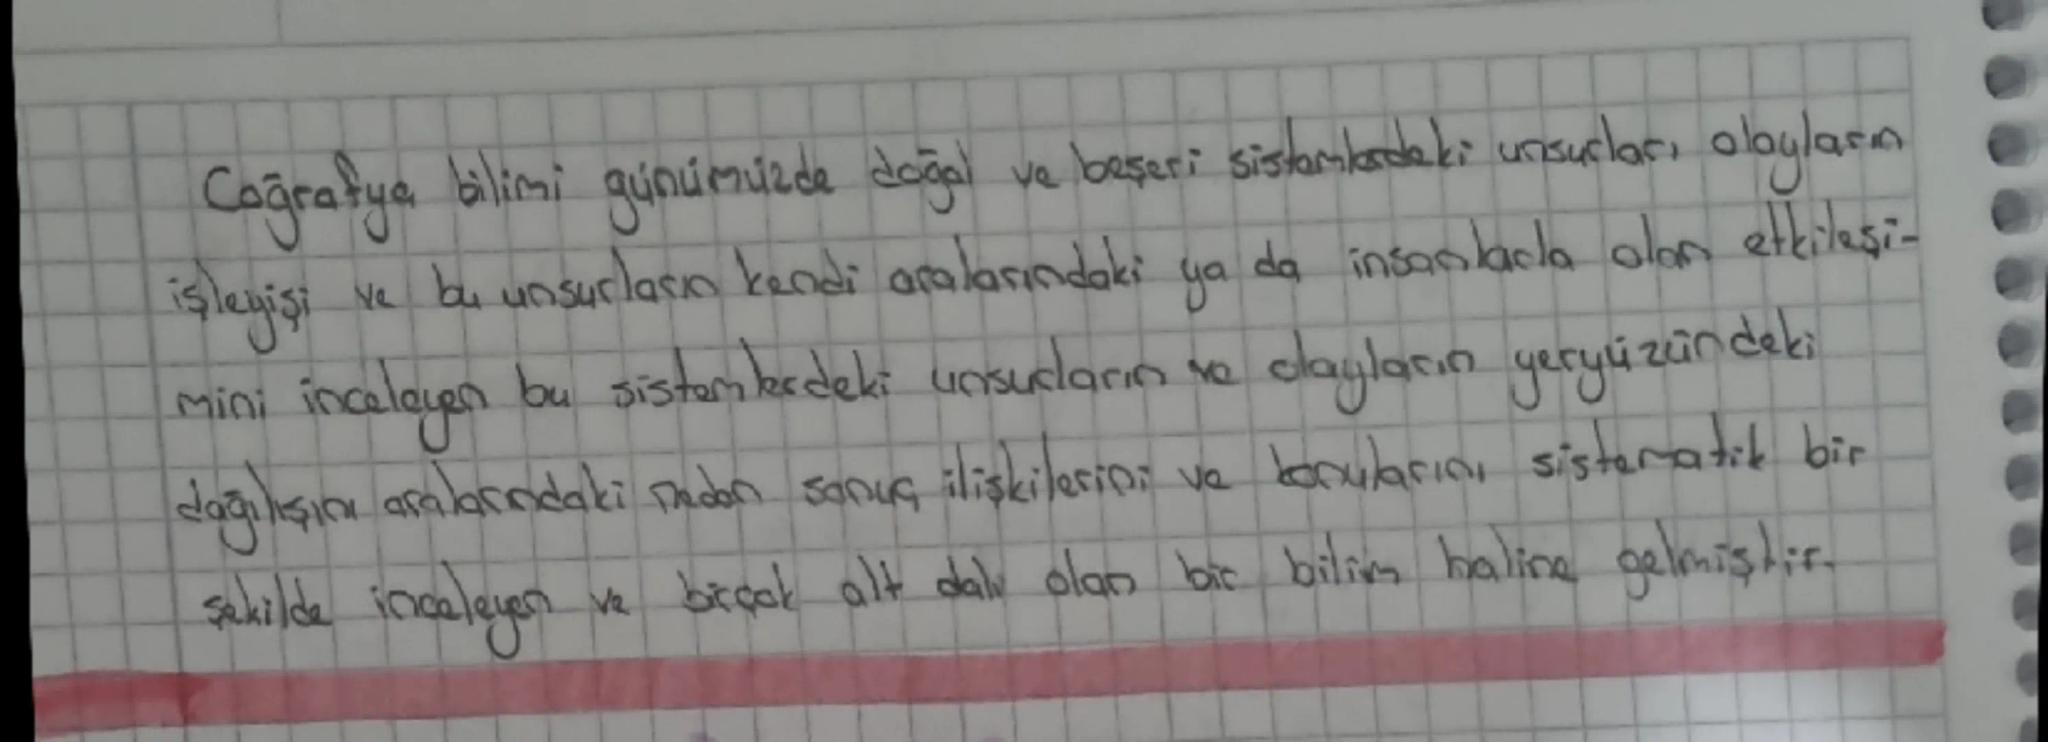 Coğrafya bilimi günümüzde doğal ve beşeri sistemlerdeki unsurları olayların
işleyişi ve bu unsurların kendi aralarındaki ya da insanlarla olan etkileşi-
mini inceleyen bu sistemlerdeki unsurların ve olayların yeryüzündeki
dağılışını aralarındaki neden sonuç ilişkilerini ve konularını sistematik bir
şekilde inceleyen ve birçok alt dalı olan bir bilim haline gelmiştir.